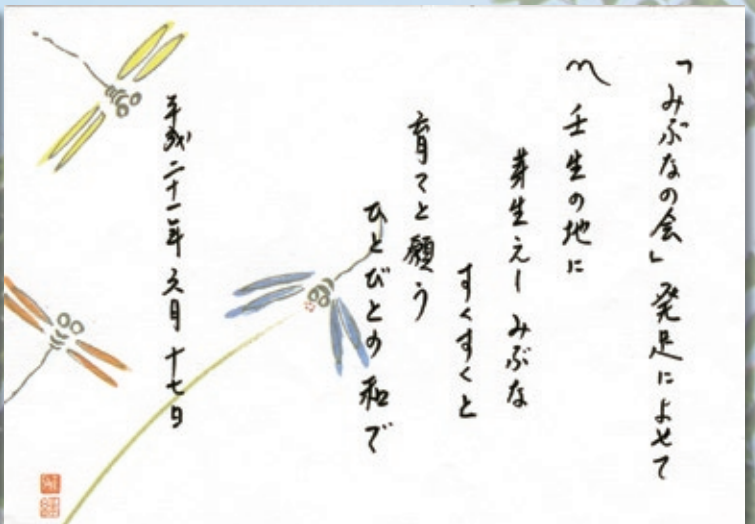 「みぶなの会」発足によせて
〽 壬生の地に
芽生えし みぶな
すくすくと
育てと願う
ひとびとの 和で
平成二十一年 六月 十七日